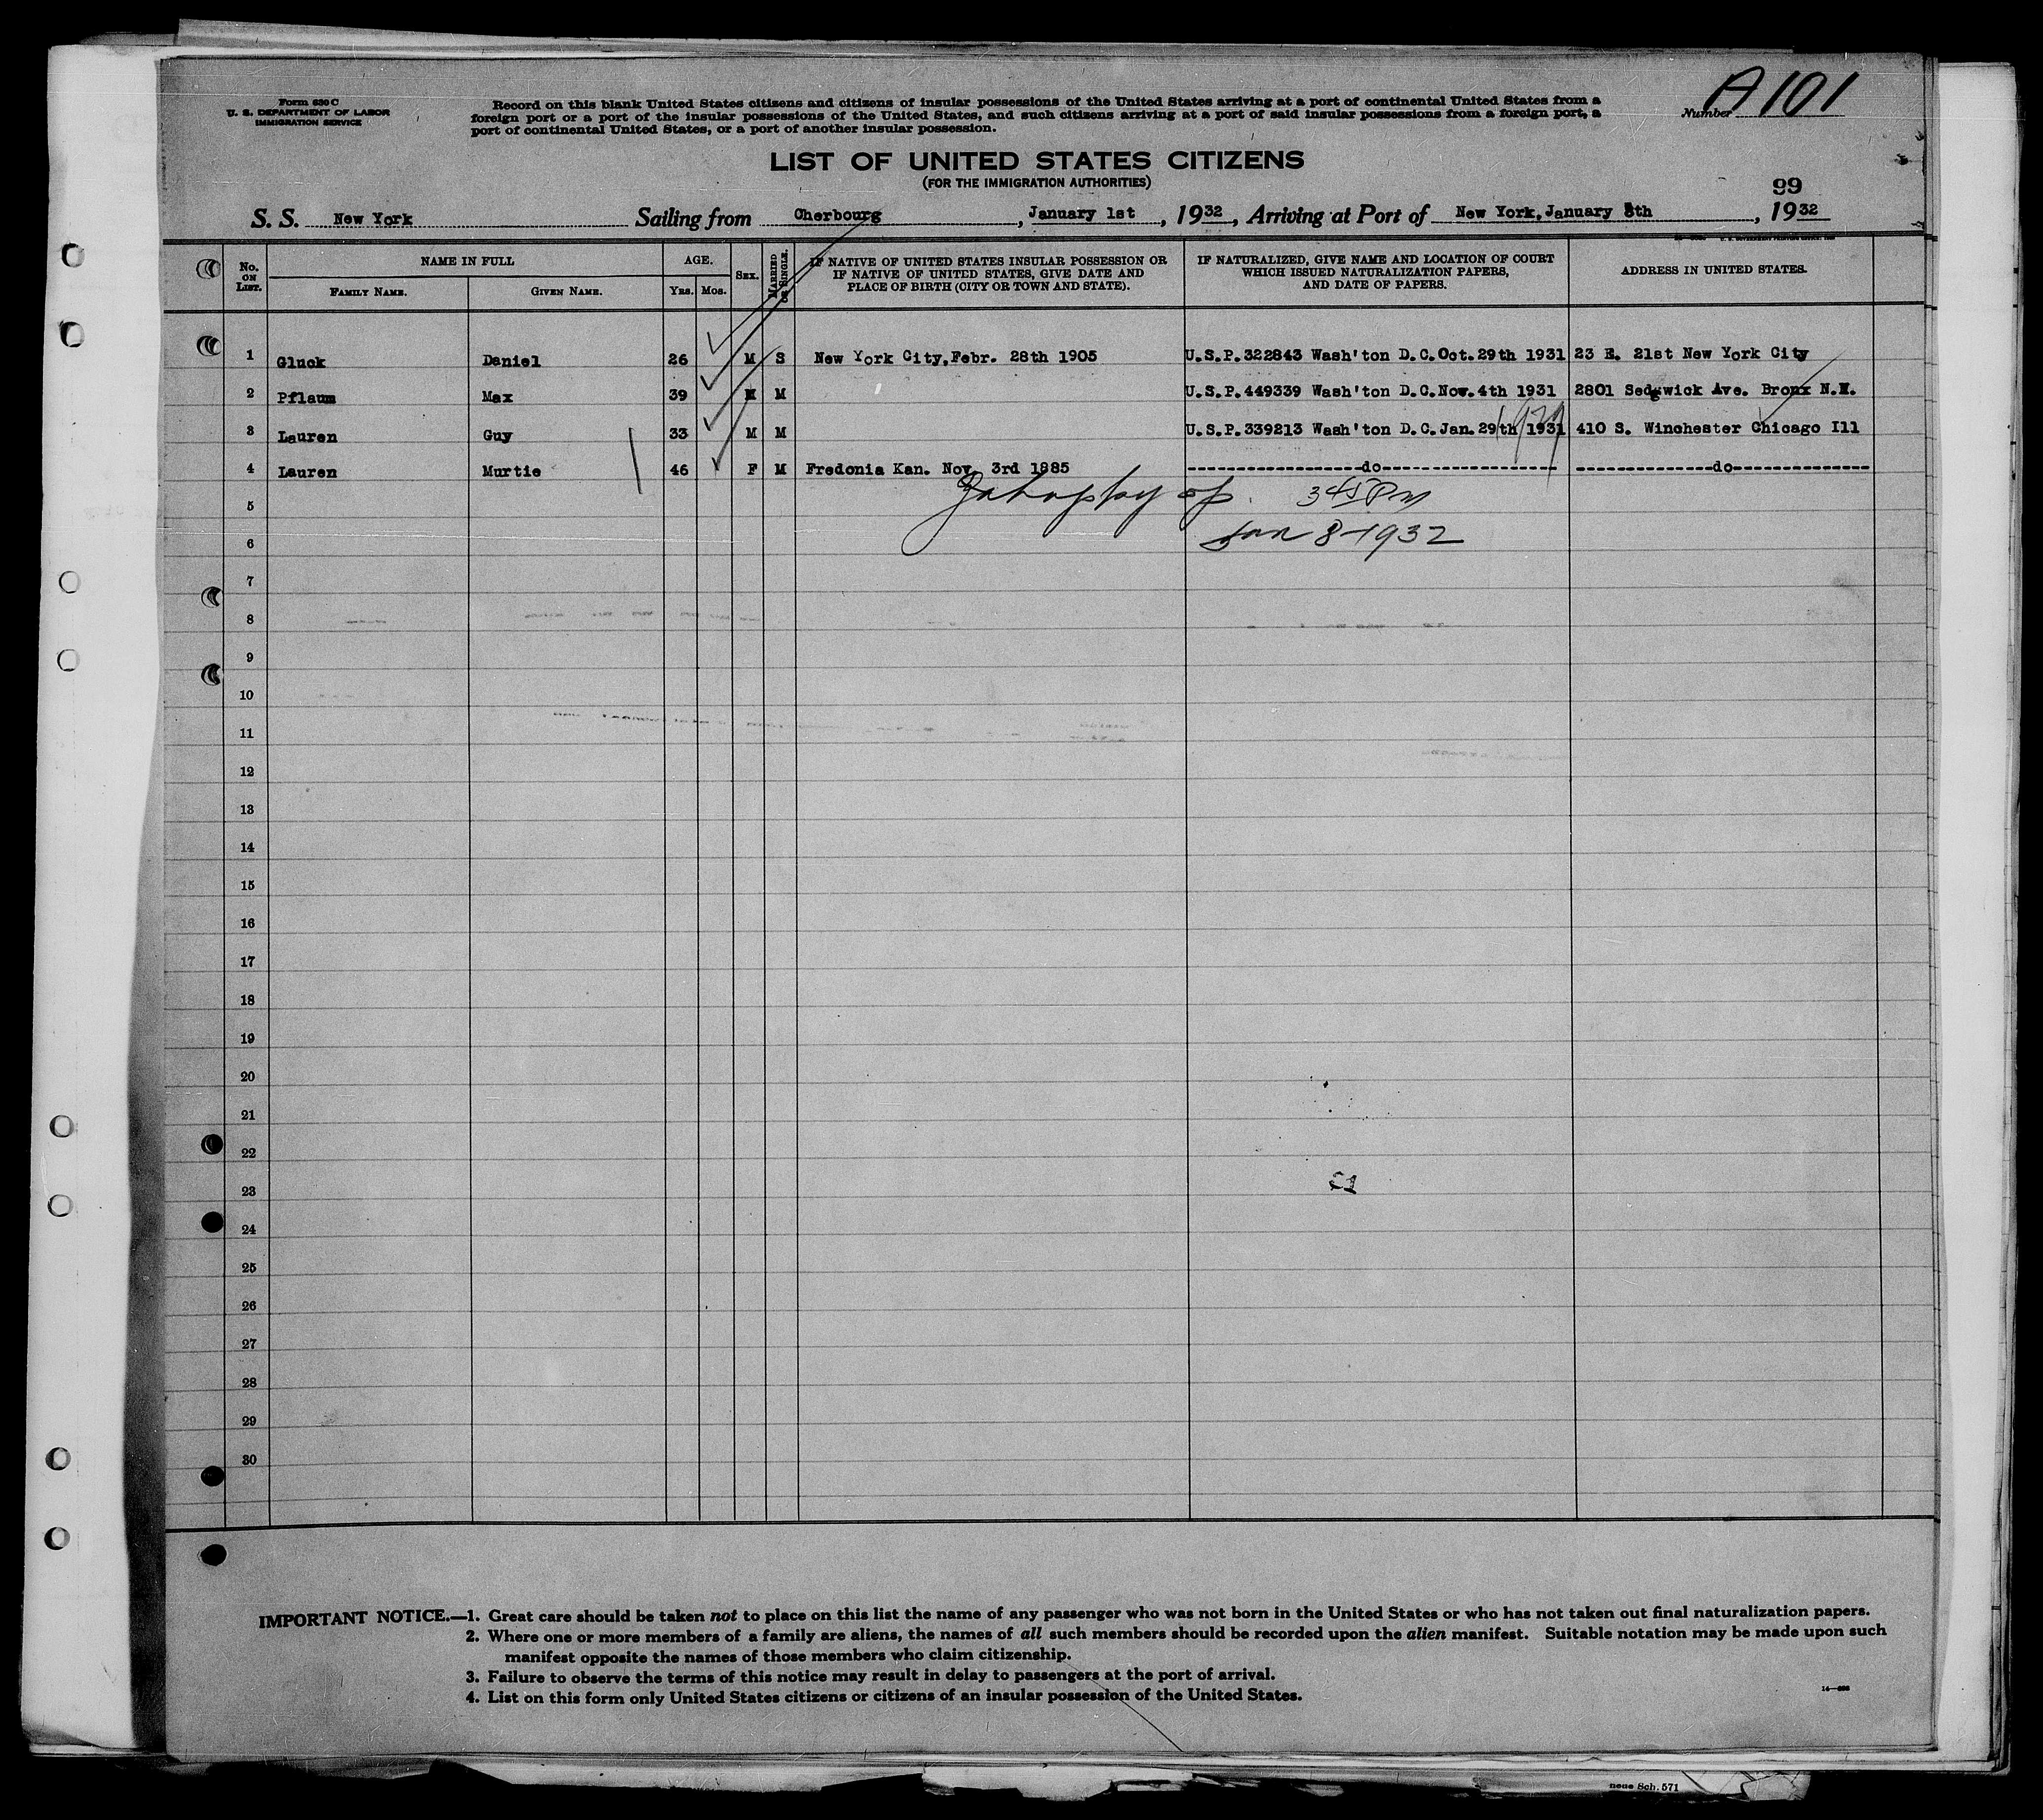 Form 630 C
U. S. DEPARTMENT OF LABOR
IMMIGRATION SERVICE
Record on this blank United States citizens and citizens of insular possessions of the United States arriving at a port of continental United States from a
foreign port or a port of the insular possessions of the United States, and such citizens arriving at a port of said insular possessions from a foreign port, a
port of continental United States, or a port of another insular possession.
Number A101
LIST OF UNITED STATES CITIZENS
(FOR THE IMMIGRATION AUTHORITIES)
99
S. S. New York Sailing from Cherbourg, January 1st, 1932, Arriving at Port of New York, January 8th, 1932
No. ON LIST. NAME IN FULL AGE. SEX. MARRIED OR SINGLE. IF NATIVE OF UNITED STATES INSULAR POSSESSION OR IF NATIVE OF UNITED STATES, GIVE DATE AND PLACE OF BIRTH (CITY OR TOWN AND STATE). IF NATURALIZED, GIVE NAME AND LOCATION OF COURT WHICH ISSUED NATURALIZATION PAPERS, AND DATE OF PAPERS. ADDRESS IN UNITED STATES.
FAMILY NAME. GIVEN NAME. YRS. MOS.
1 Gluck Daniel 26 M S New York City, Febr. 28th 1905 U.S.P.322843 Wash'ton D.C.Oct.29th 1931 23 E. 21st New York City
2 Pflaum Max 39 M M U.S.P.449339 Wash'ton D.C.Nov.4th 1931 2801 Sedgwick Ave. Bronx N.Y.
3 Lauren Guy 33 M M U.S.P.339213 Wash'ton D.C.Jan.29th 1931 410 S. Winchester Chicago Ill
4 Lauren Murtie 46 F M Fredonia Kan. Nov. 3rd 1885 ------do------ ------do------
5 345 Pm
6 Jan 8-1932
7
8
9
10
11
12
13
14
15
16
17
18
19
20
21
22
23
24
25
26
27
28
29
30
IMPORTANT NOTICE.—1. Great care should be taken not to place on this list the name of any passenger who was not born in the United States or who has not taken out final naturalization papers.
2. Where one or more members of a family are aliens, the names of all such members should be recorded upon the alien manifest. Suitable notation may be made upon such
manifest opposite the names of those members who claim citizenship.
3. Failure to observe the terms of this notice may result in delay to passengers at the port of arrival.
4. List on this form only United States citizens or citizens of an insular possession of the United States.
neue Sch. 571